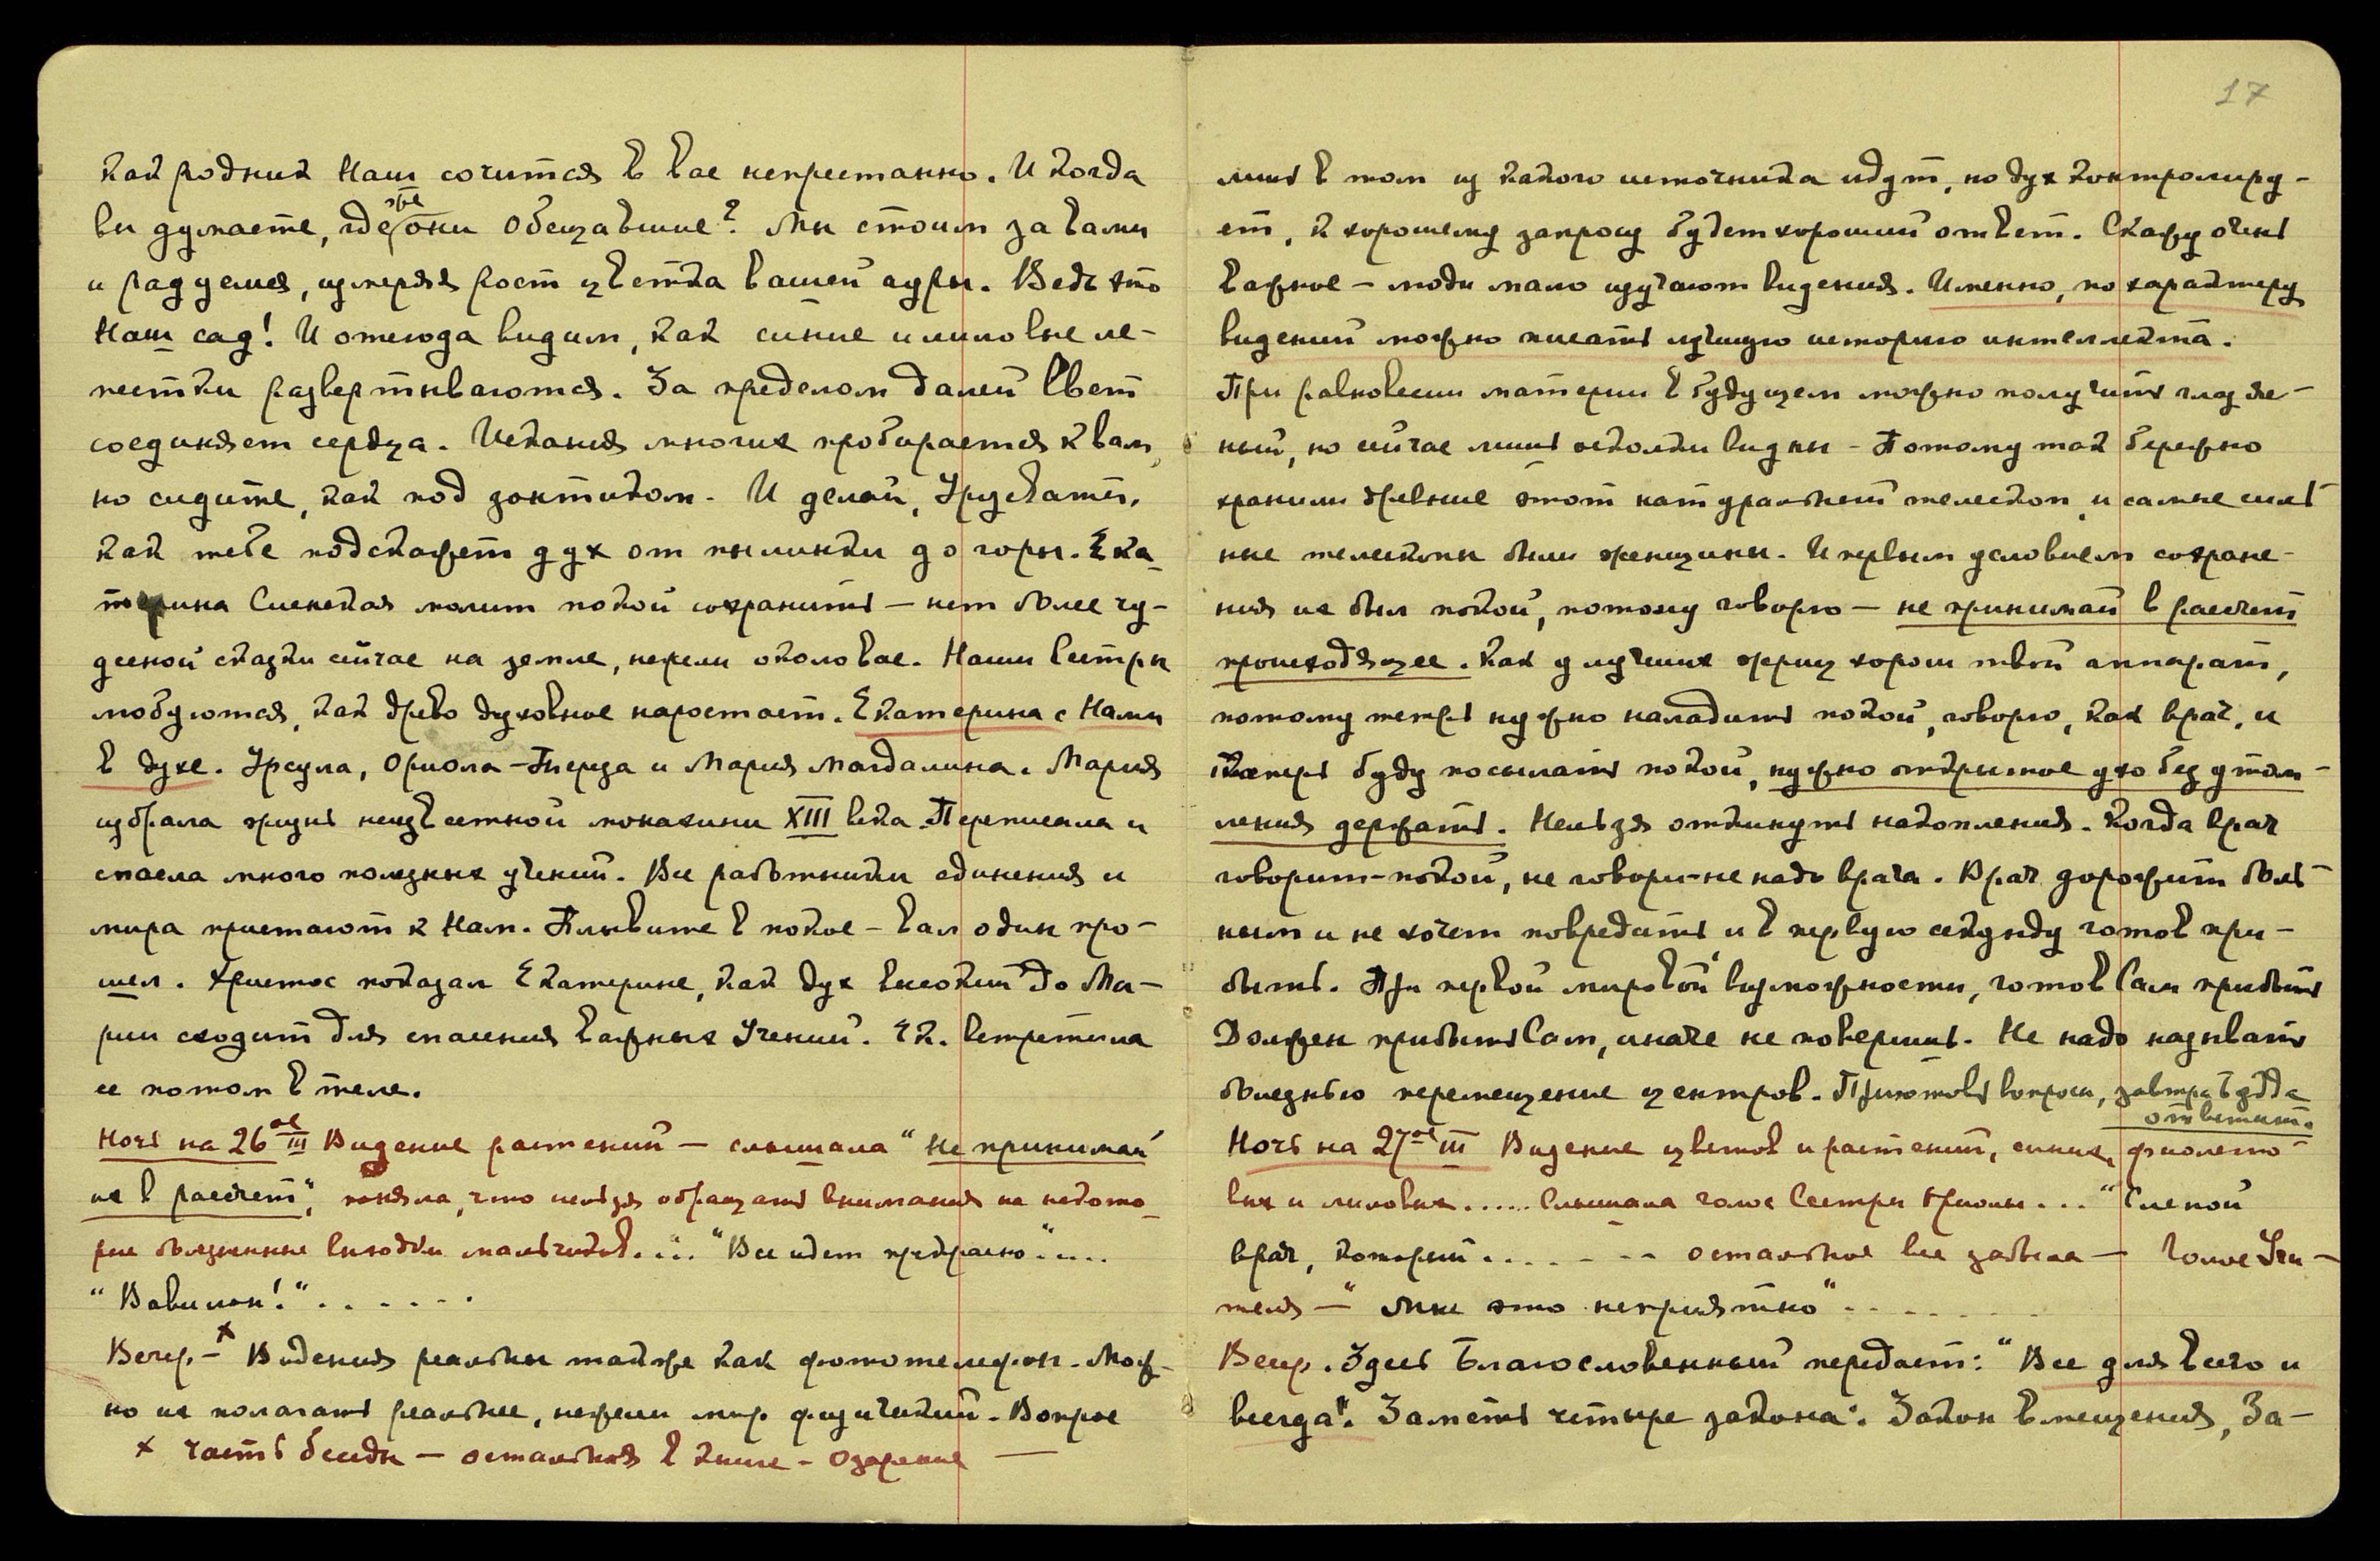 как родник Наш сочится в вас непрестанно. И когда
вы думаете, где же они обещавшие? Мы стоим за вами
и радуемся, измеряя рост цветка вашей ауры. Ведь это
Наш сад! И отсюда видим, как синие и лиловые ле-
пестки развертываются. За пределом далей Свет
соединяет сердца. Искания многих пробирается к вам,
но сидите, как под зонтиком. И делай, Урусвати,
как тебе подскажет дух от пылинки до горы. Ека-
терина Сиенская молит покой сохранить — нет более чу-
десной сказки сейчас на земле, нежели около вас. Наши Сестры
любуются, как древо духовное наростает. Екатерина с Нами
в духе. Урсула, Ориола-Тереза и Мария Магдалина. Мария
избрала жизнь неизвестной монахини XIII века. Переписала и
спасла много полезных учений. Все работники единения и
мира пристают к Нам. Плывите в покое – вам один при-
шел. Христос показал Екатерине, как дух высокий до Ма-
рии сходит для спасения важных Учений. Ек. встретила
ее потом в теле.
Ночь на 26ое III Видение растений — слышала "Не принимай
их в рассчет", поняла, что нельзя обращать внимания на некото-
рые болезненные выходки мальчиков... "Все идет прекрасно"....
"Вавилон!" . . . . . .
Вечер – х Видения реальны также как фототелефон. Мож-
но их полагать реальнее, нежели мир физический. Вопрос
х часть беседы — остальная в книге – Озарение —
17
лишь в том из какого источника идут, но дух контролиру-
ет, к хорошему запросу будет хороший ответ. Скажу очень
важное – люди мало изучают видения. Именно, по характеру
видений можно писать лучшую историю интеллекта.
При равновесии материи в будущем можно получить глаз яс-
ный, но сейчас лишь осколки видны – Потому так бережно
хранили древние этот натуральный телескоп, и самые силь-
ные телескопы были женщины. И первым условием сохране-
ния их был покой, потому говорю — не принимай в рассчет
происходящее. Как у лучших жриц хорош твой аппарат,
потому теперь нужно наладить покой, говорю, как врач, и
теперь буду посылать покой, нужно открытое ухо без утом-
ления держать. Нельзя откинуть накопления. Когда врач
говорит – покой, не говори – не надо врача. Врач дорожит боль-
ным и не хочет повредить и в первую секунду готов при-
быть. При первой мировой возможности, готов Сам прибыть
Должен прибыть Сам, иначе не поверишь. Не надо называть
болезнью перемещение центров. Приготовь вопросы, завтра Будда
ответит.
Ночь на 27ое III Видение цветов и растений, синих, фиолето-
вых и лиловых...... Слышала голос Сестры Ориолы... "Слепой
врач, который . . . . - - остальное все забыла — Голос Учи-
теля — "Мне это неприятно" . . . . . . .
Вечер. Здесь Благословенный передает: "Все для всего и
всегда". Заметь четыре закона: Закон вмещения, За-